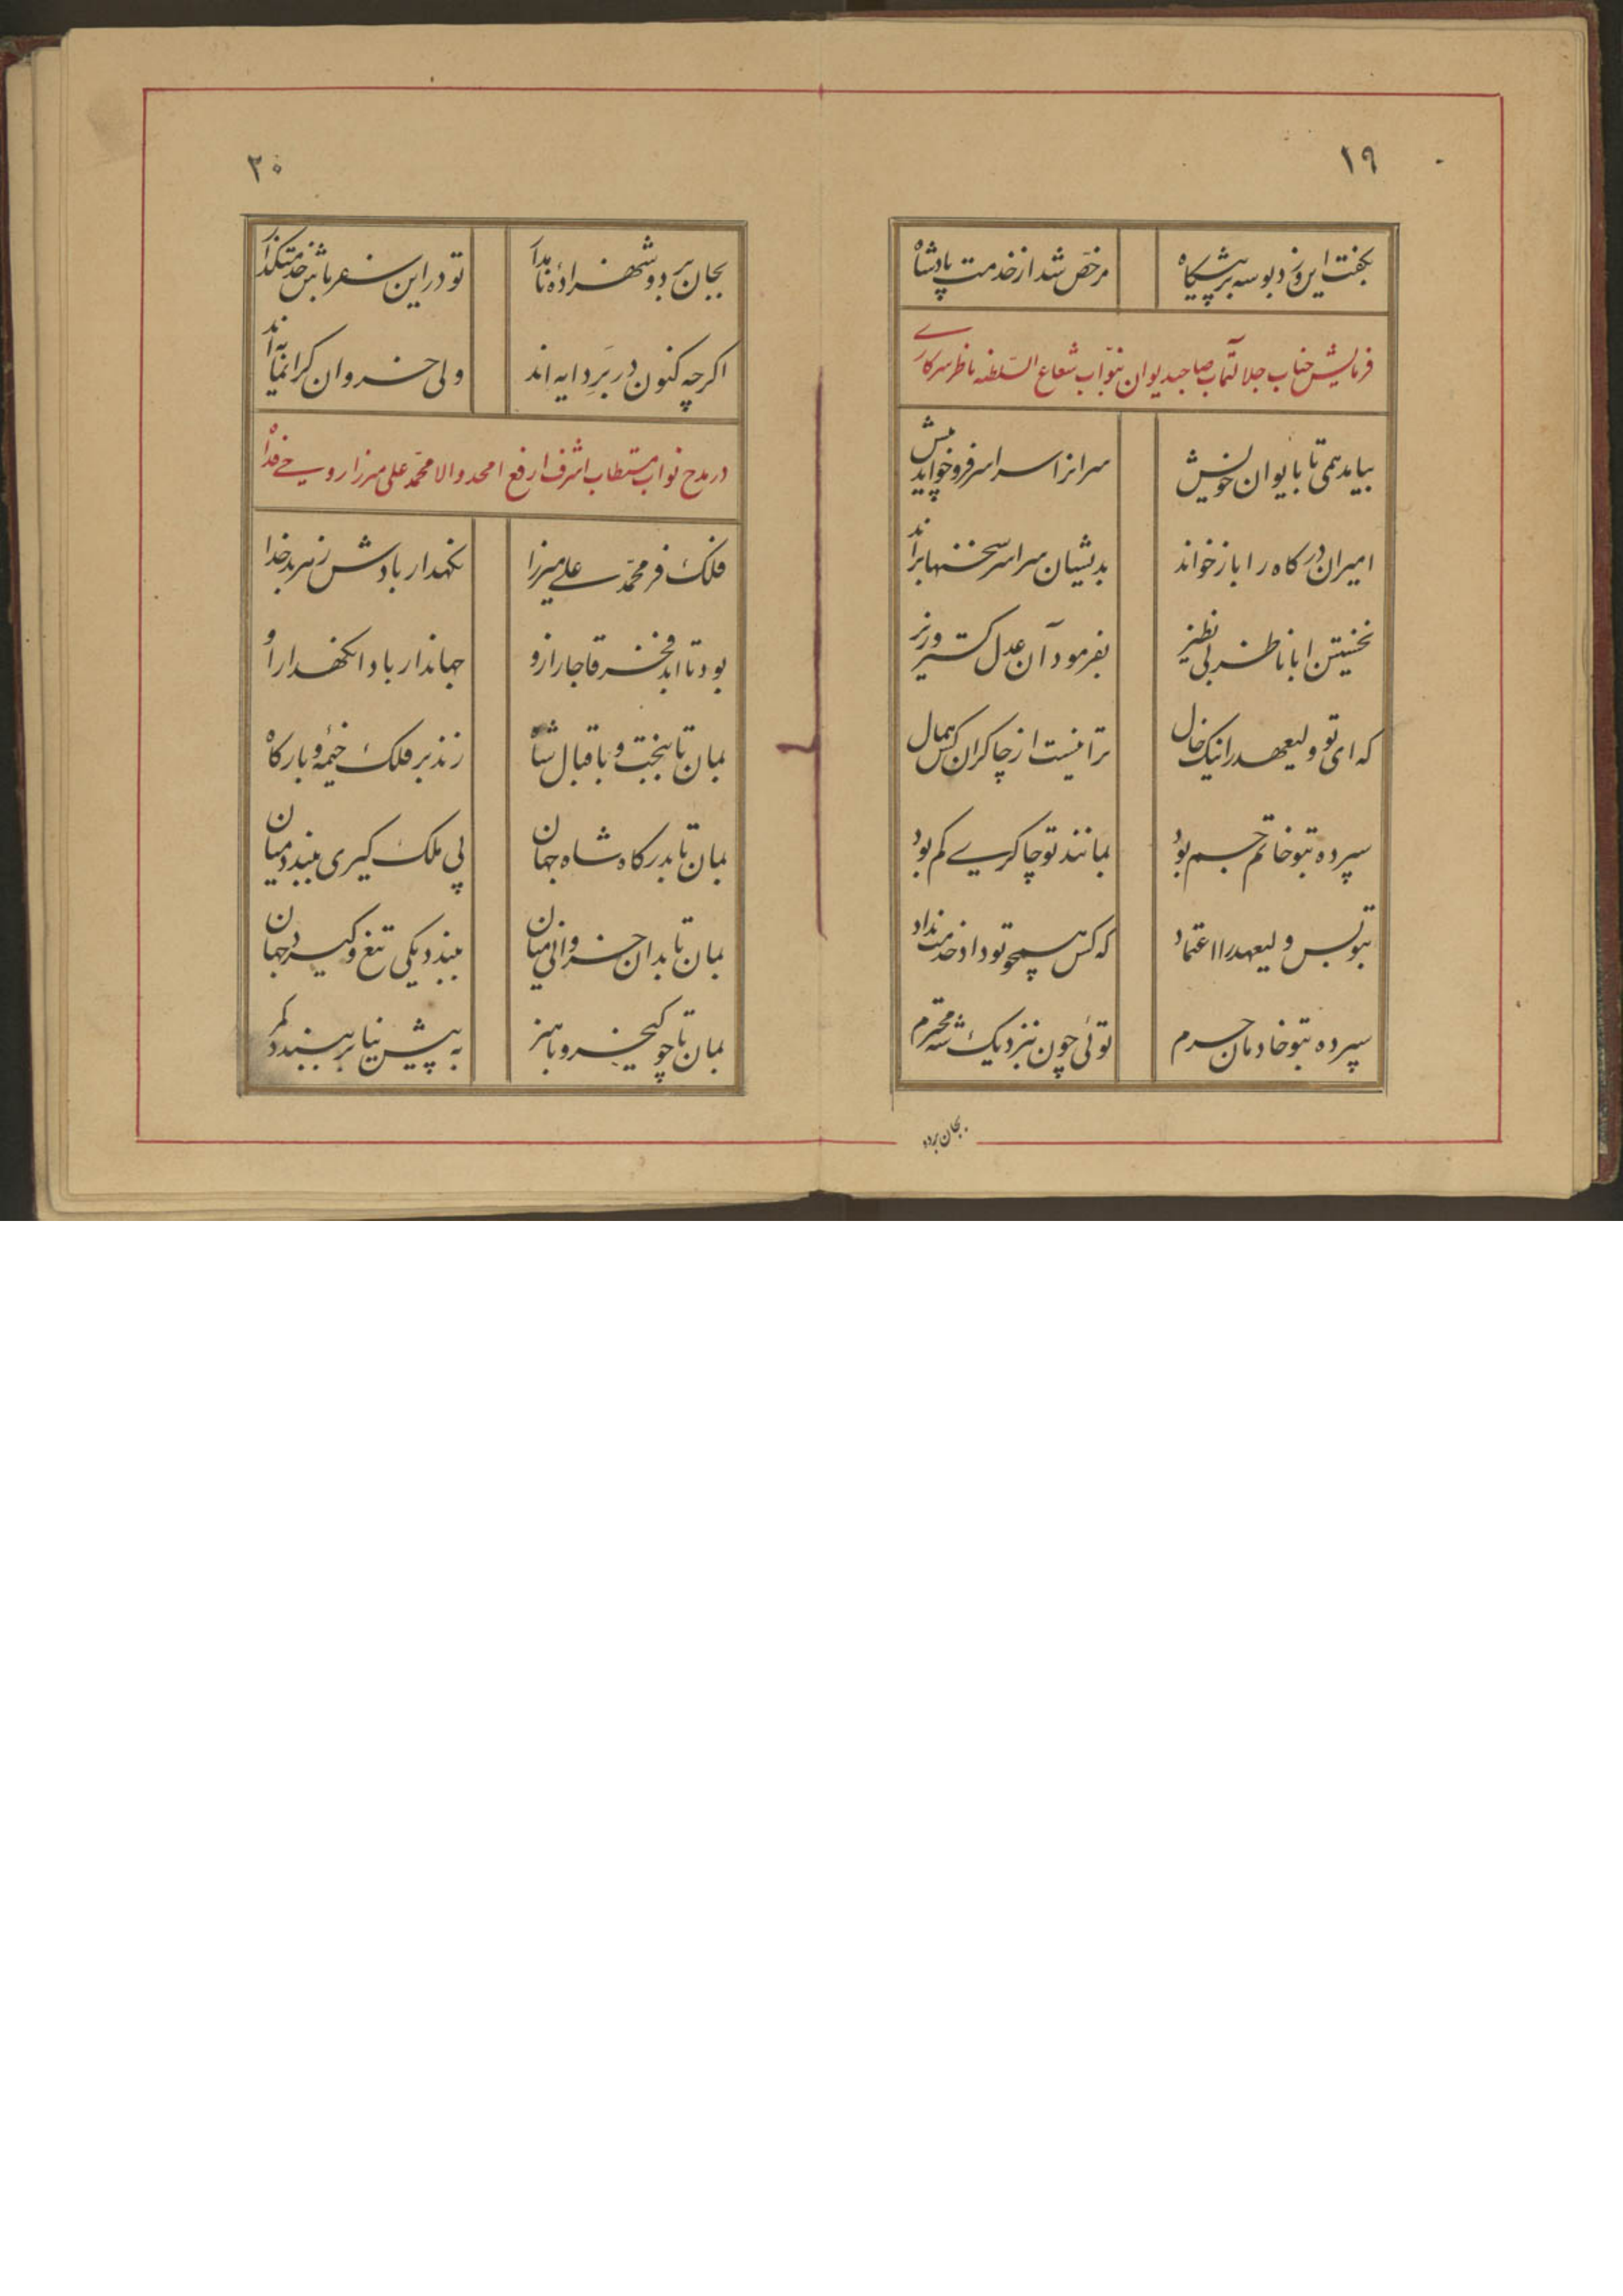 ١٩
بکفت این و زد بوسه بر پیشکاه مرخص شد از خدمت پادشاه
فرمایش جناب جلالتمآب صاحبدیوان بنوّاب شعاع السّلطنه ناظر سرکاری
بیامد همی تا بایوان خویش سرانرا سراسر فرو خواند پیش
امیران درکاه را باز خواند بدیشان سراسر سخنها براند
نخستین ابا ناظر بی نظیر بفرمود آن عدل کستر وزیر
که ای تو ولیعهد را نیک خال ترا نیست از چاکران کس همال
سپرده بتو خاتم جم بود بمانند تو چاکری کم بود
بتو بس ولیعهد را اعتماد که کس همچو تو داد خدمت نداد
سپرده بتو خادمان حرم توئی چون بنزدیک شه محترم
بجان بر دو
٢٠
بجان بر دو شهزادهٔ نامدار تو در این سفر باش خدمتکذار
اکرچه کنون در بَرِ دایه اند ولی خسروان کرانمایه اند
در مدح نواب مستطاب اشرف ارفع امجد والا محمّد علی میرزا روحی فداه
فلک فر محمّد علی میرزا نکهدار بادش ز هر بد خدا
بود تا ابد فخر قاجار ازو جهاندار بادا نکهدار او
بمان تا ببخت و باقبال شاه زند بر فلک خیمه و بارکاه
بمان تا بدرکاه شاه جهان پی ملک کیری ببندد میان
بمان تا بدان خسروانی میان ببندد یکی تیغ و کیرد جهان
بمان تا چو کیخسرو با هنر به پیش نیا بر ببندد کمر